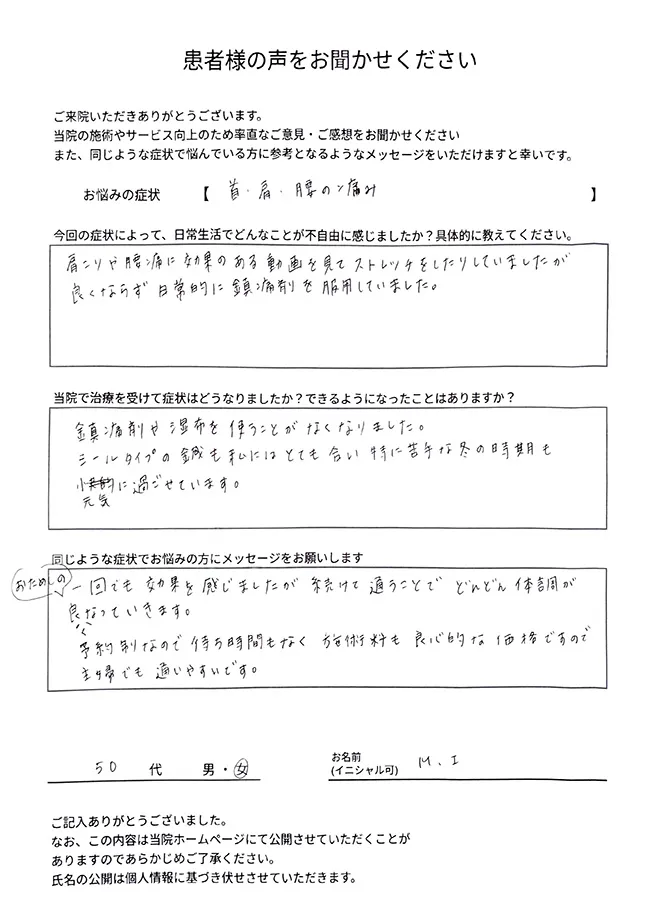 患者様の声をお聞かせください
ご来院いただきありがとうございます。
当院の施術やサービス向上のため率直なご意見・ご感想をお聞かせください
また、同じような症状で悩んでいる方に参考となるようなメッセージをいただけますと幸いです。
お悩みの症状 【 首・肩・腰の痛み 】
今回の症状によって、日常生活でどんなことが不自由に感じましたか？具体的に教えてください。
肩こりや腰痛に効果のある動画を見てストレッチをしたりしていましたが
良くならず日常的に鎮痛剤を服用していました。
当院で治療を受けて症状はどうなりましたか？できるようになったことはありますか？
鎮痛剤や湿布を使うことがなくなりました。
シールタイプの鍼も私にはとても合い特に苦手な冬の時期も
に過ごせています。
元気
同じような症状でお悩みの方にメッセージをお願いします
おためしの一回でも効果を感じましたが続けて通うことでどんどん体調が
良くなっていきます。
予約制なので待ち時間もなく施術料も良心的な価格ですので
主婦でも通いやすいです。
50 代 男・女
お名前
(イニシャル可) M.I
ご記入ありがとうございました。
なお、この内容は当院ホームページにて公開させていただくことが
ありますのであらかじめご了承ください。
氏名の公開は個人情報に基づき伏せさせていただきます。